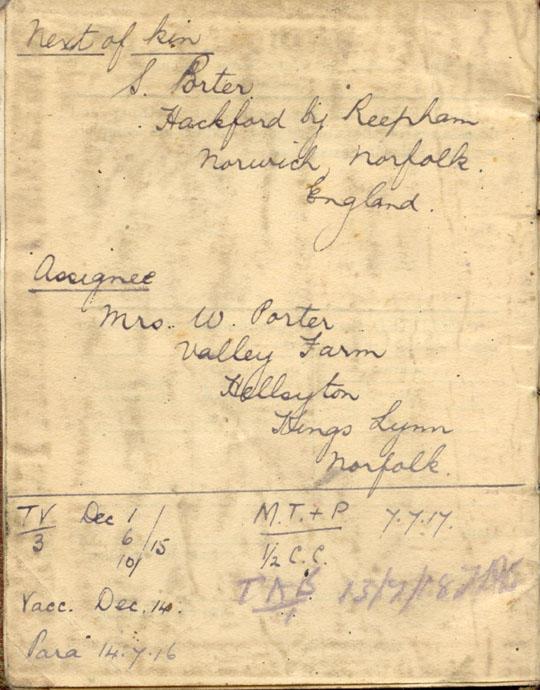 Next of kin
S. Porter
Hackford by Reepham
Norwich, Norfolk.
England.
Assignee
Mrs. W. Porter
Valley Farm
Kings Lynn
Norfolk.
TV Dec 1 /
3 6 /15
10/
M.T.+P 7.7.17.
1/2 C.C.
Vacc. Dec. 14.
TAB 13/7/18
Para 14.7.16